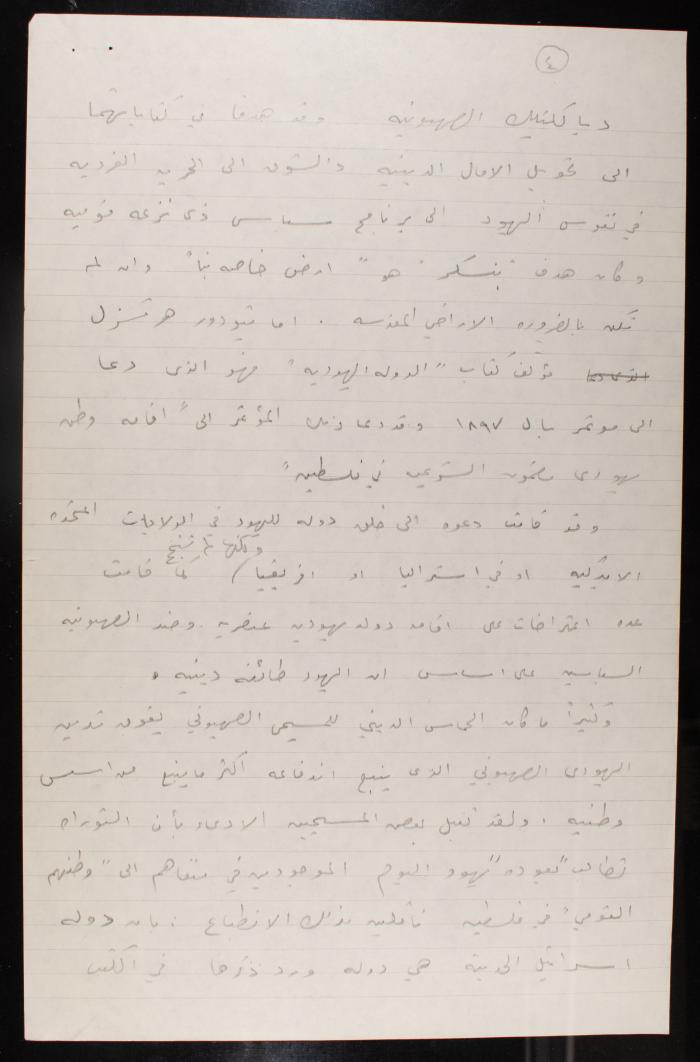 ٤
ديالكتيك الصهيونيه وقد هدفا في كتاباتهما
الى تحويل الامال الدينيه والشوق الى الحريه الفرديه
في نفوس اليهود الى برنامج سياسي ذى نزعه قوميه
وكان هدف "بنسكر" هو "ارض خاصه بنا" وان لم
تكن بالضروره الاراضي المقدسه . اما تيودور هرتسزل
مؤلف كتاب "الدوله اليهوديه" فهو الذى دعا
الى موتمر بال ١٨٩٧ وقد دعا ذلك المؤتمر الى "اقامه وطن
يهودى مضمون في فلسطين"
وقد قامت دعوه الى خلق دوله لليهود في الولايات المتحده
ولكنها لم تنجح
الامريكيه او في استراليا او افريقيا / كما قامت
عده اعتراضات على اقامه دوله يهوديه عنصريه وضد الصهيونيه
السياسيه على اساس ان اليهود طائفه دينيه .
وكثيراً ما كان الحماس الديني للمسيحى الصهيوني يفوق تدين
اليهودى الصهيوني الذى ينبع اندفاعه أكثر ما ينبع من اسس
وطنيه . ولقد تقبل بعض المسيحيين الادعاء بأن التوراه
تطالب "بعوده" يهود اليوم الموجودين في منفاهم الى "وطنهم
القومي" في فلسطين ناقلين بذلك الانطباع : بان دوله
اسرائيل الحديثه هي دوله ورد ذكرها في الكتب